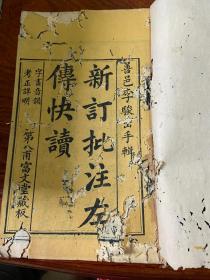 善邑李駿岩手輯
新訂批注左
傳快讀
字畫音韻
考正詳明
第八甫富文堂藏板